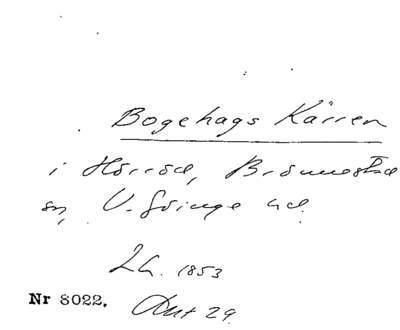 Bogehags Kärren
i Hörröd, Brönnestad
sn, V. Göinge hd.
LH. 1853
Nr 8022. Akt 29